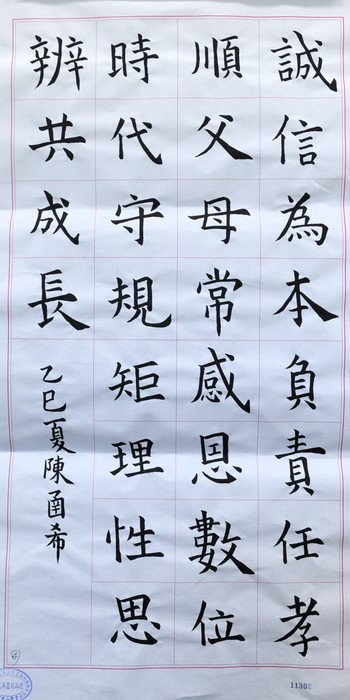 誠信為本負責任孝
順父母常感恩數位
時代守規矩理性思
辨共成長
乙巳夏陳函希
11302